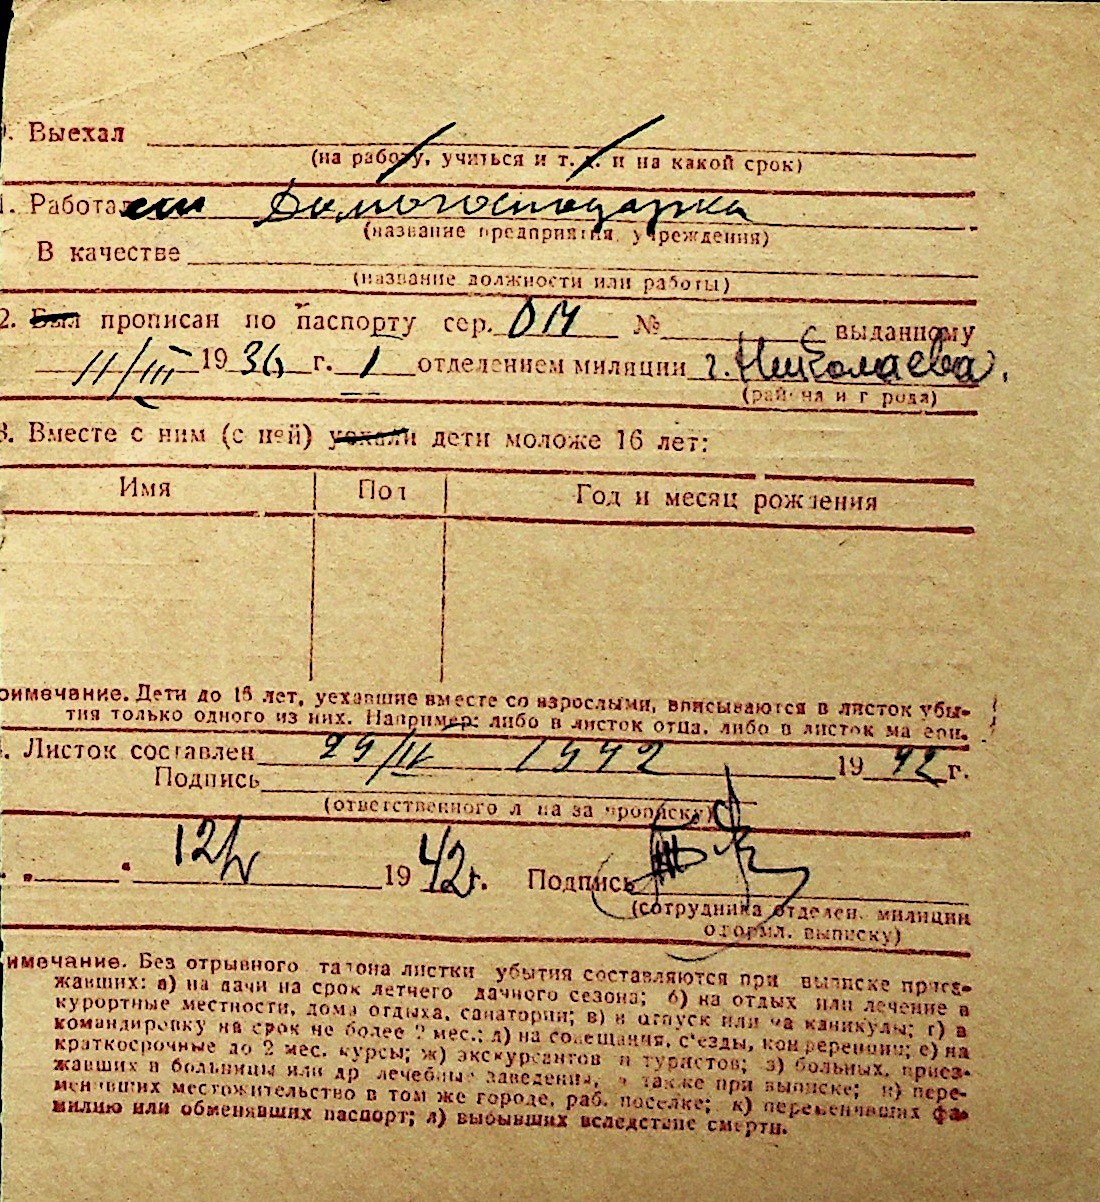 . Выехал
(на работу, учиться и т. д. и на какой срок)
1. Работа Домогосподарка
(название предприятия, учреждения)
В качестве
(название должности или работы)
2. Был прописан по паспорту сер. ОМ № выданному
11/III 1936 г. 1 отделением милиции г. Николаева.
(района и города)
3. Вместе с ним (с ней) уехали дети моложе 16 лет:
Имя Пол Год и месяц рождения
римечание. Дети до 16 лет, уехавшие вместе со взрослыми, вписываются в листок убы-
тия только одного из них. Например: либо в листок отца, либо в листок матери.
. Листок составлен 29/IV 1942 1942 г.
Подпись
(ответственного лица за прописку)
12/V 1942 г. Подпись
(сотрудника отделен. милиции
оформл. выписку)
имечание. Без отрывного талона листки убытия составляются при выписке приез-
жавших: а) на дачи на срок летнего дачного сезона; б) на отдых или лечение в
курортные местности, дома отдыха, санатории; в) в отпуск или на каникулы; г) в
командировку на срок не более 2 мес.; д) на совещания, с'езды, конференции; е) на
краткосрочные до 2 мес. курсы; ж) экскурсантов и туристов; з) больных, приез-
жавших в больницы или др лечебные заведения, а также при выписке; и) пере-
менивших местожительство в том же городе, раб. поселке; к) переменивших фа-
милию или обменявших паспорт; л) выбывших вследствие смерти.